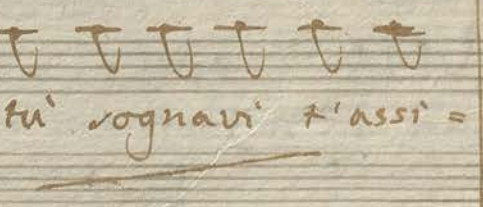 tù sognavi t'assi =